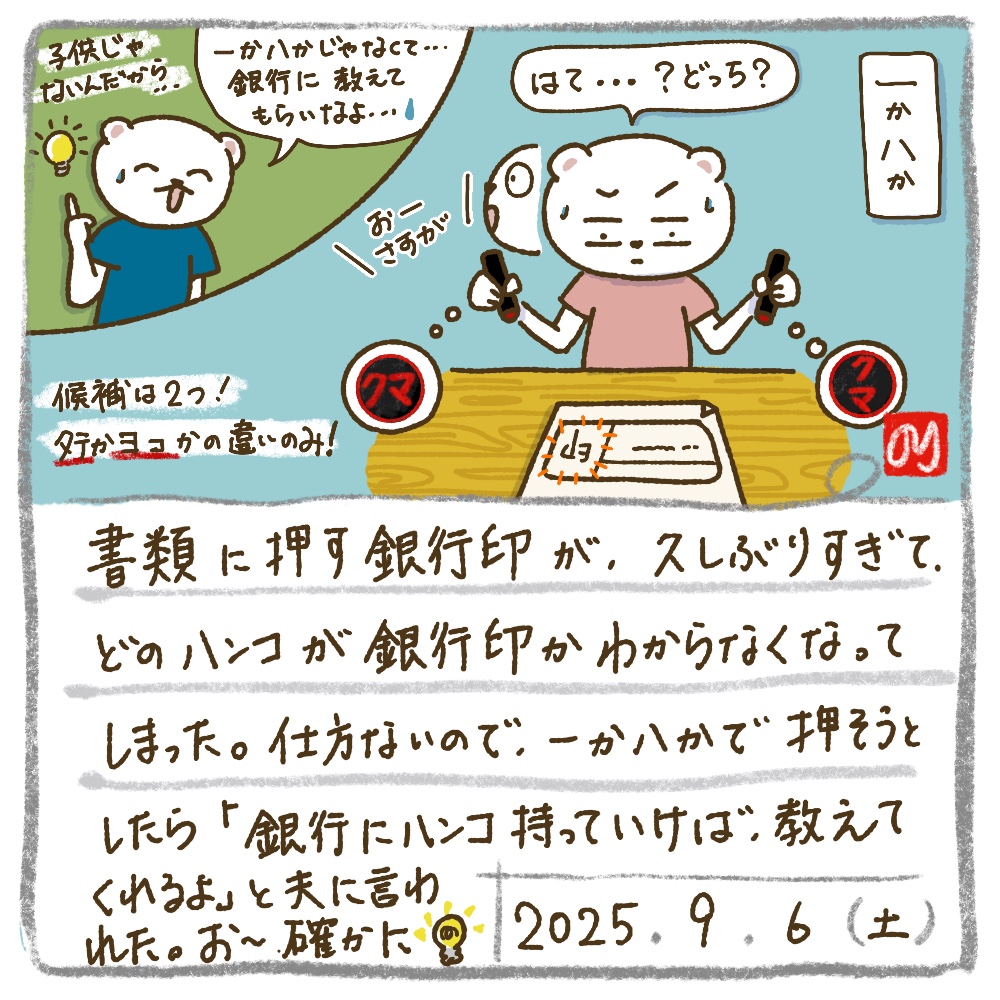 一か八か
はて・・・?どっち?
おー
さすが
子供じゃ
ないんだから・・・
一か八かじゃなくて・・・
銀行に教えて
もらいなよ・・・
クマ
クマ
候補は2つ!
タテかヨコかの違いのみ!
印
のり
書類に押す銀行印が、久しぶりすぎて、
どのハンコが銀行印かわからなくなって
しまった。仕方ないので、一か八かで押そうと
したら「銀行にハンコ持っていけば、教えて
くれるよ」と夫に言わ
れた。お〜確かに
の
2025.9.6(土)